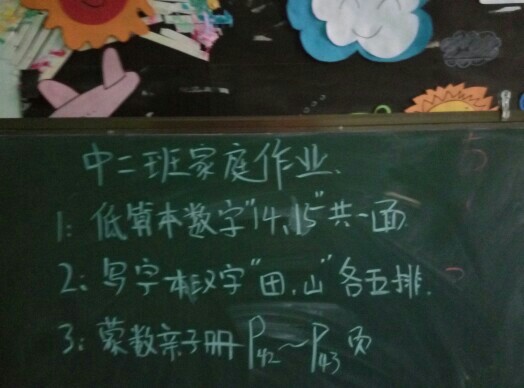 中二班家庭作业、
1: 低算本数字"14、15"共一面
2: 写字本汉字"田、山"各五排.
3: 蒙数亲子册P42~P43页